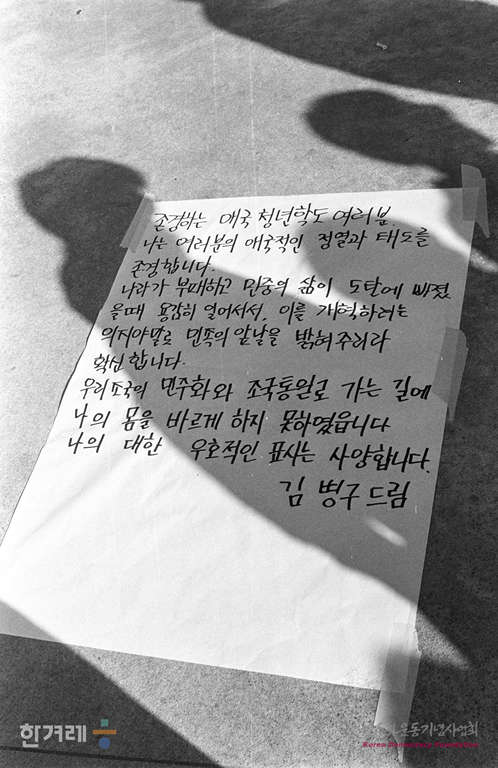 존경하는 애국 청년학도 여러분
나는 여러분의 애국적인 정열과 태도를
존경합니다.
나라가 부패하고 민중의 삶이 도탄에 빠졌
을때 용감히 일어서서, 이를 개혁하려는
의지야말로 민족의 앞날을 밝혀주리라
확신합니다.
우리조국의 민주화와 조국통일로 가는 길에
나의 몸을 바르게 하지 못하였읍니다
나의 대한 우호적인 표시는 사양합니다.
김병구 드림
한겨레
운동기념사업회